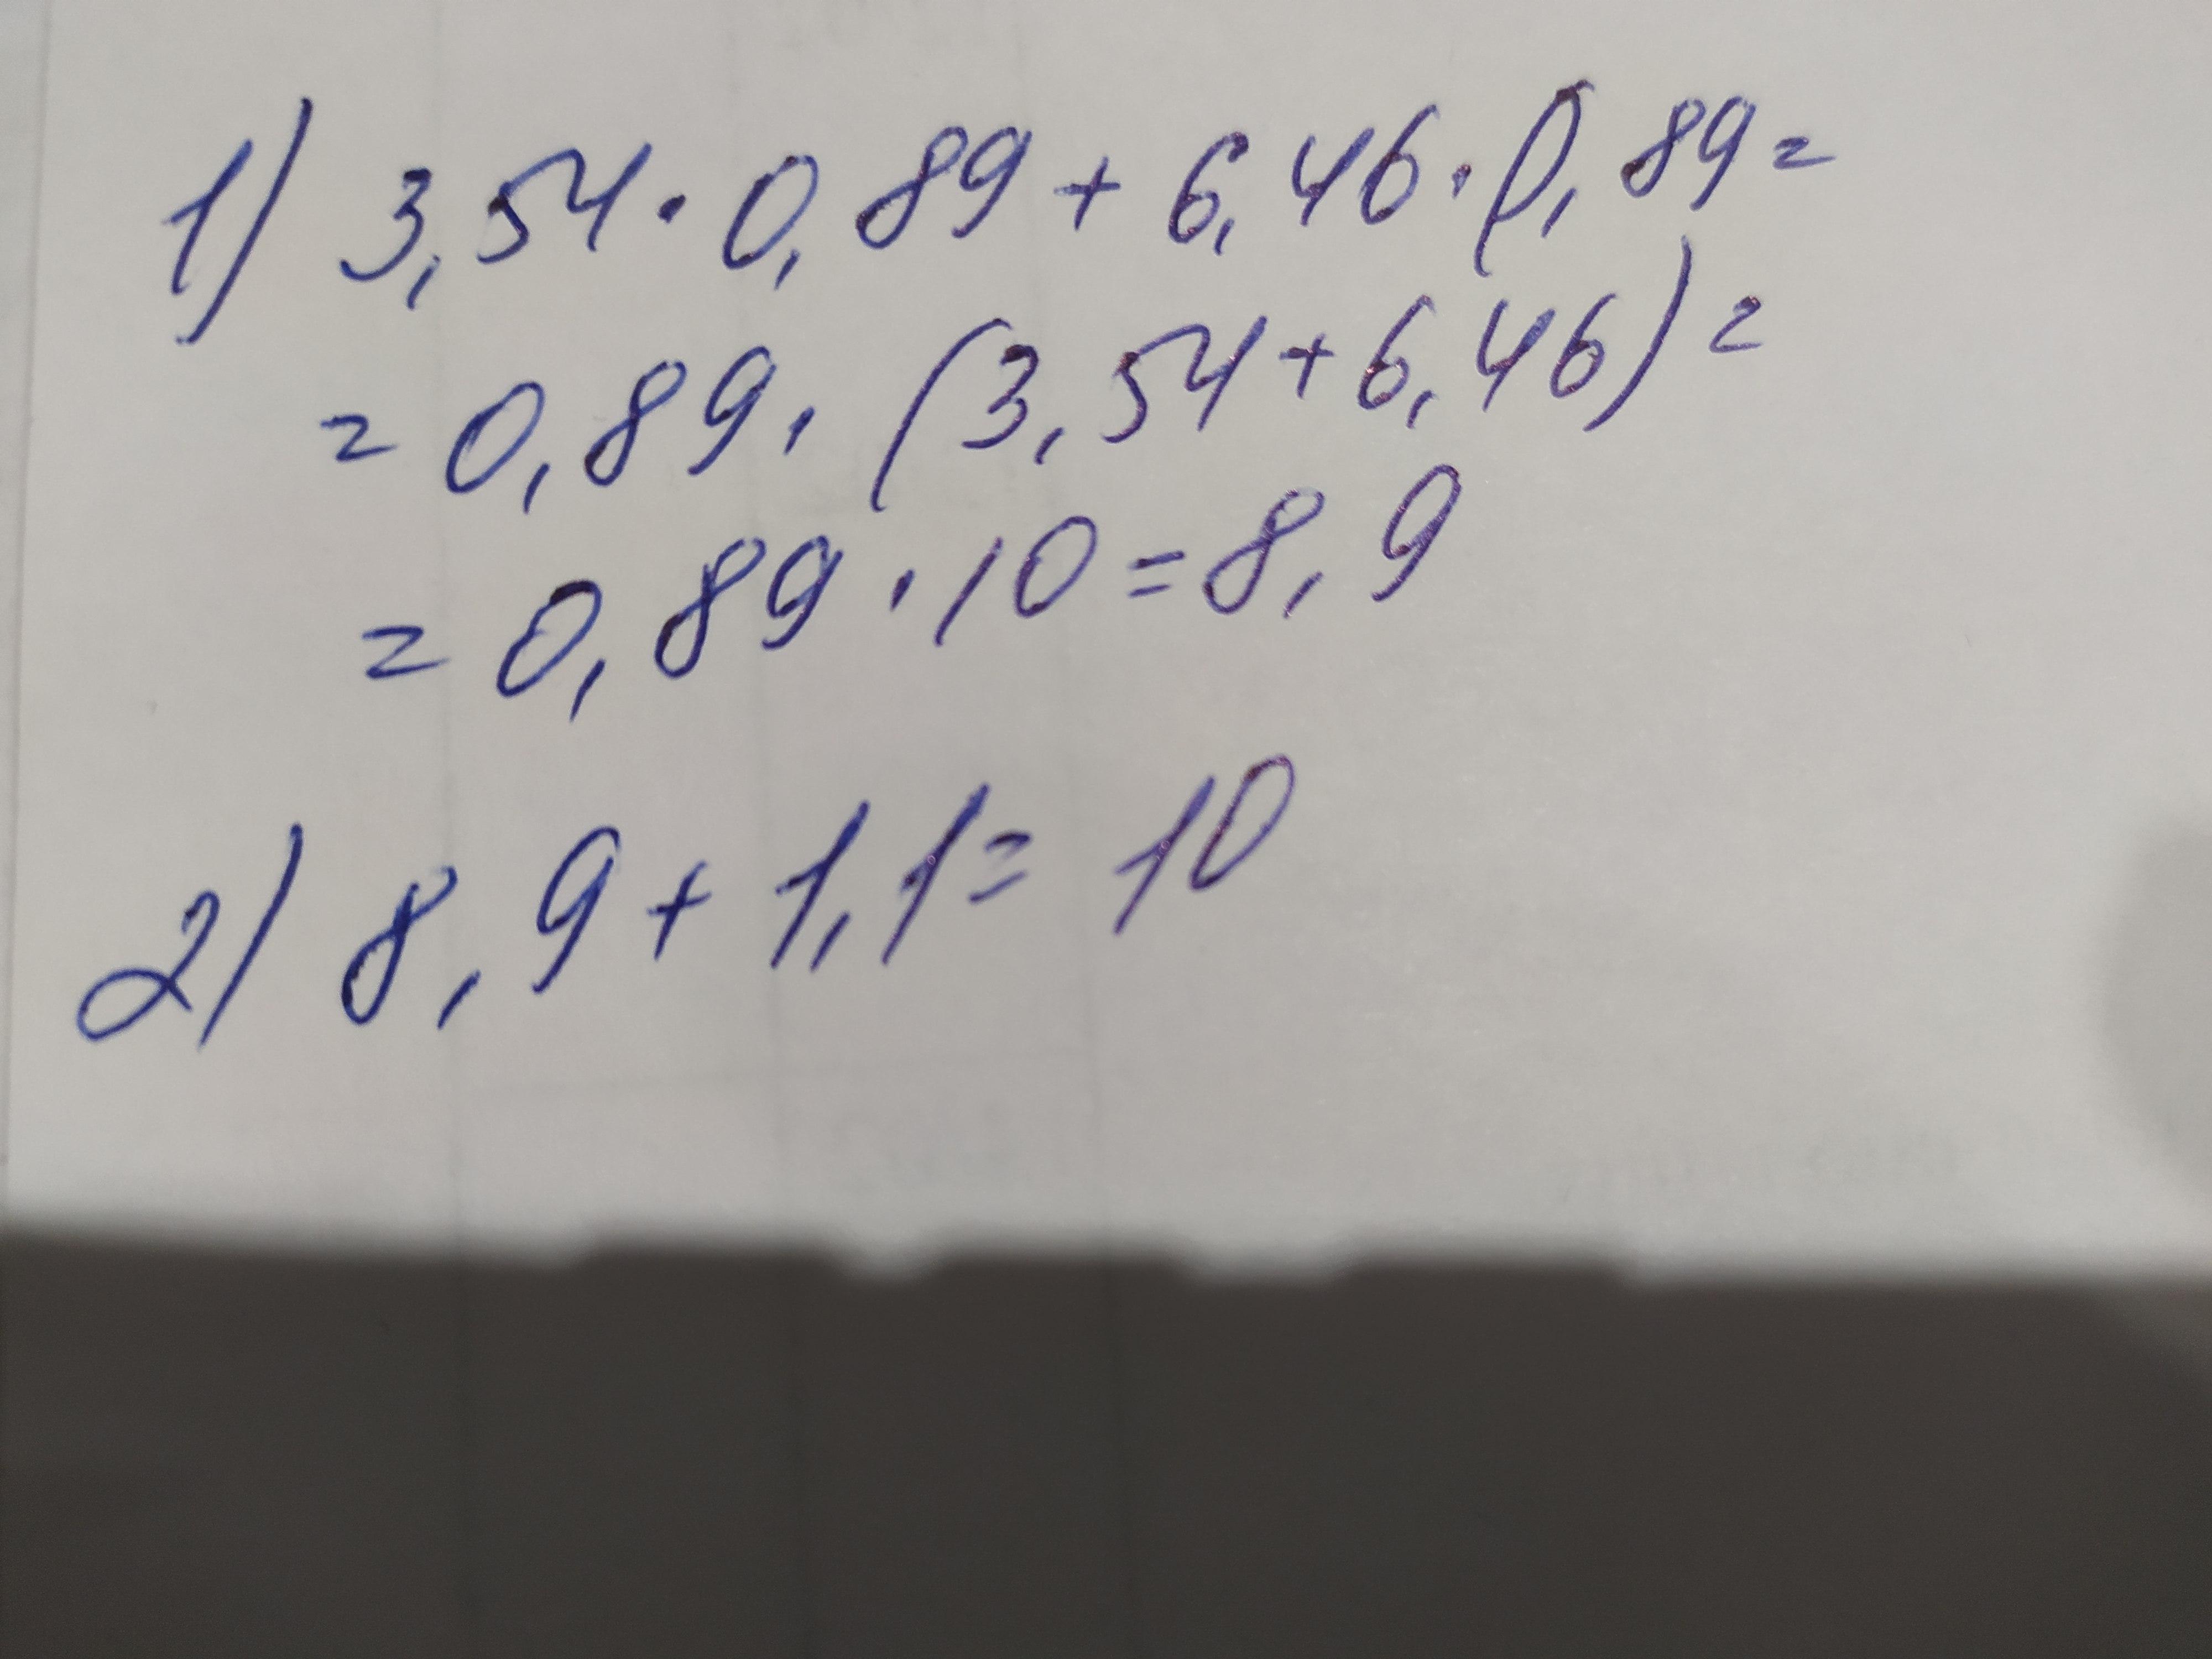 1) 3,54·0,89+6,46·0,89=
=0,89·(3,54+6,46)=
=0,89·10=8,9
2) 8,9+1,1=10